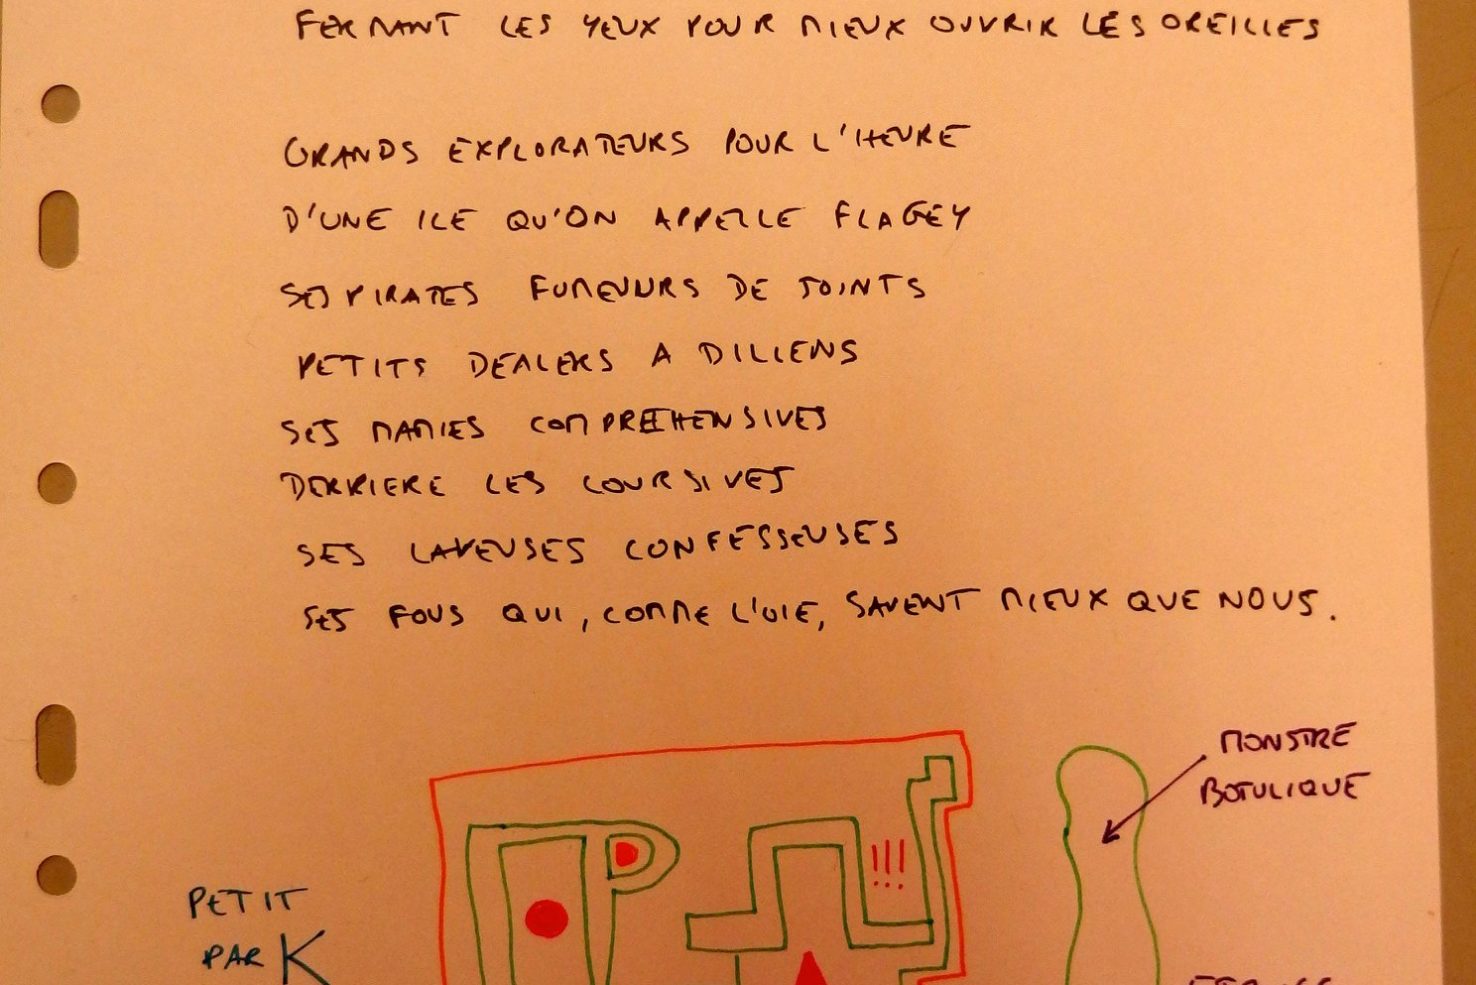 FERMANT LES YEUX POUR MIEUX OUVRIR LES OREILLES
GRANDS EXPLORATEURS POUR L'HEURE
D'UNE ILE QU'ON APPELLE FLAGEY
SES PIRATES FUMEURS DE JOINTS
PETITS DEALERS A DILLENS
SES MAMIES COMPREHENSIVES
DERRIERE LES COURSIVES
SES LAVEUSES CONFESSEUSES
SES FOUS QUI, COMME L'OIE, SAVENT MIEUX QUE NOUS.
MONSTRE
BOTULIQUE
!!!
PETIT
PAR K